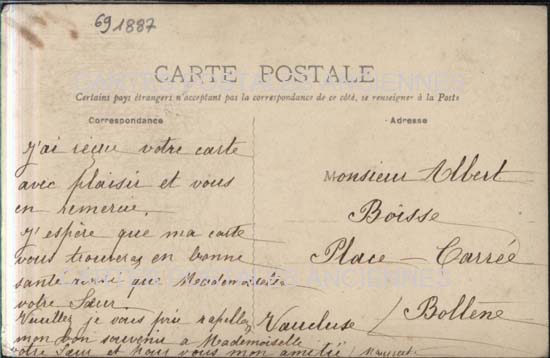 691887
CARTE POSTALE
CARTES POSTALES ANCIENNES
Certains pays étrangers n'acceptant pas la correspondance de ce côté, se renseigner à la Poste
Correspondance
J'ai reçue votre carte
avec plaisir et vous
en remercie.
J'espère que ma carte
vous trouveras en bonne
santé ainsi que Mademoiselle
votre Sœur.
Veuillez je vous prie rapeller
mon bon souvenir a Mademoiselle
votre Sœur et vous mon amitié
Adresse
Monsieur Albert
Boisse
Place - Carrée
Bollène
Vaucluse
CARTES POSTALES ANCIENNES